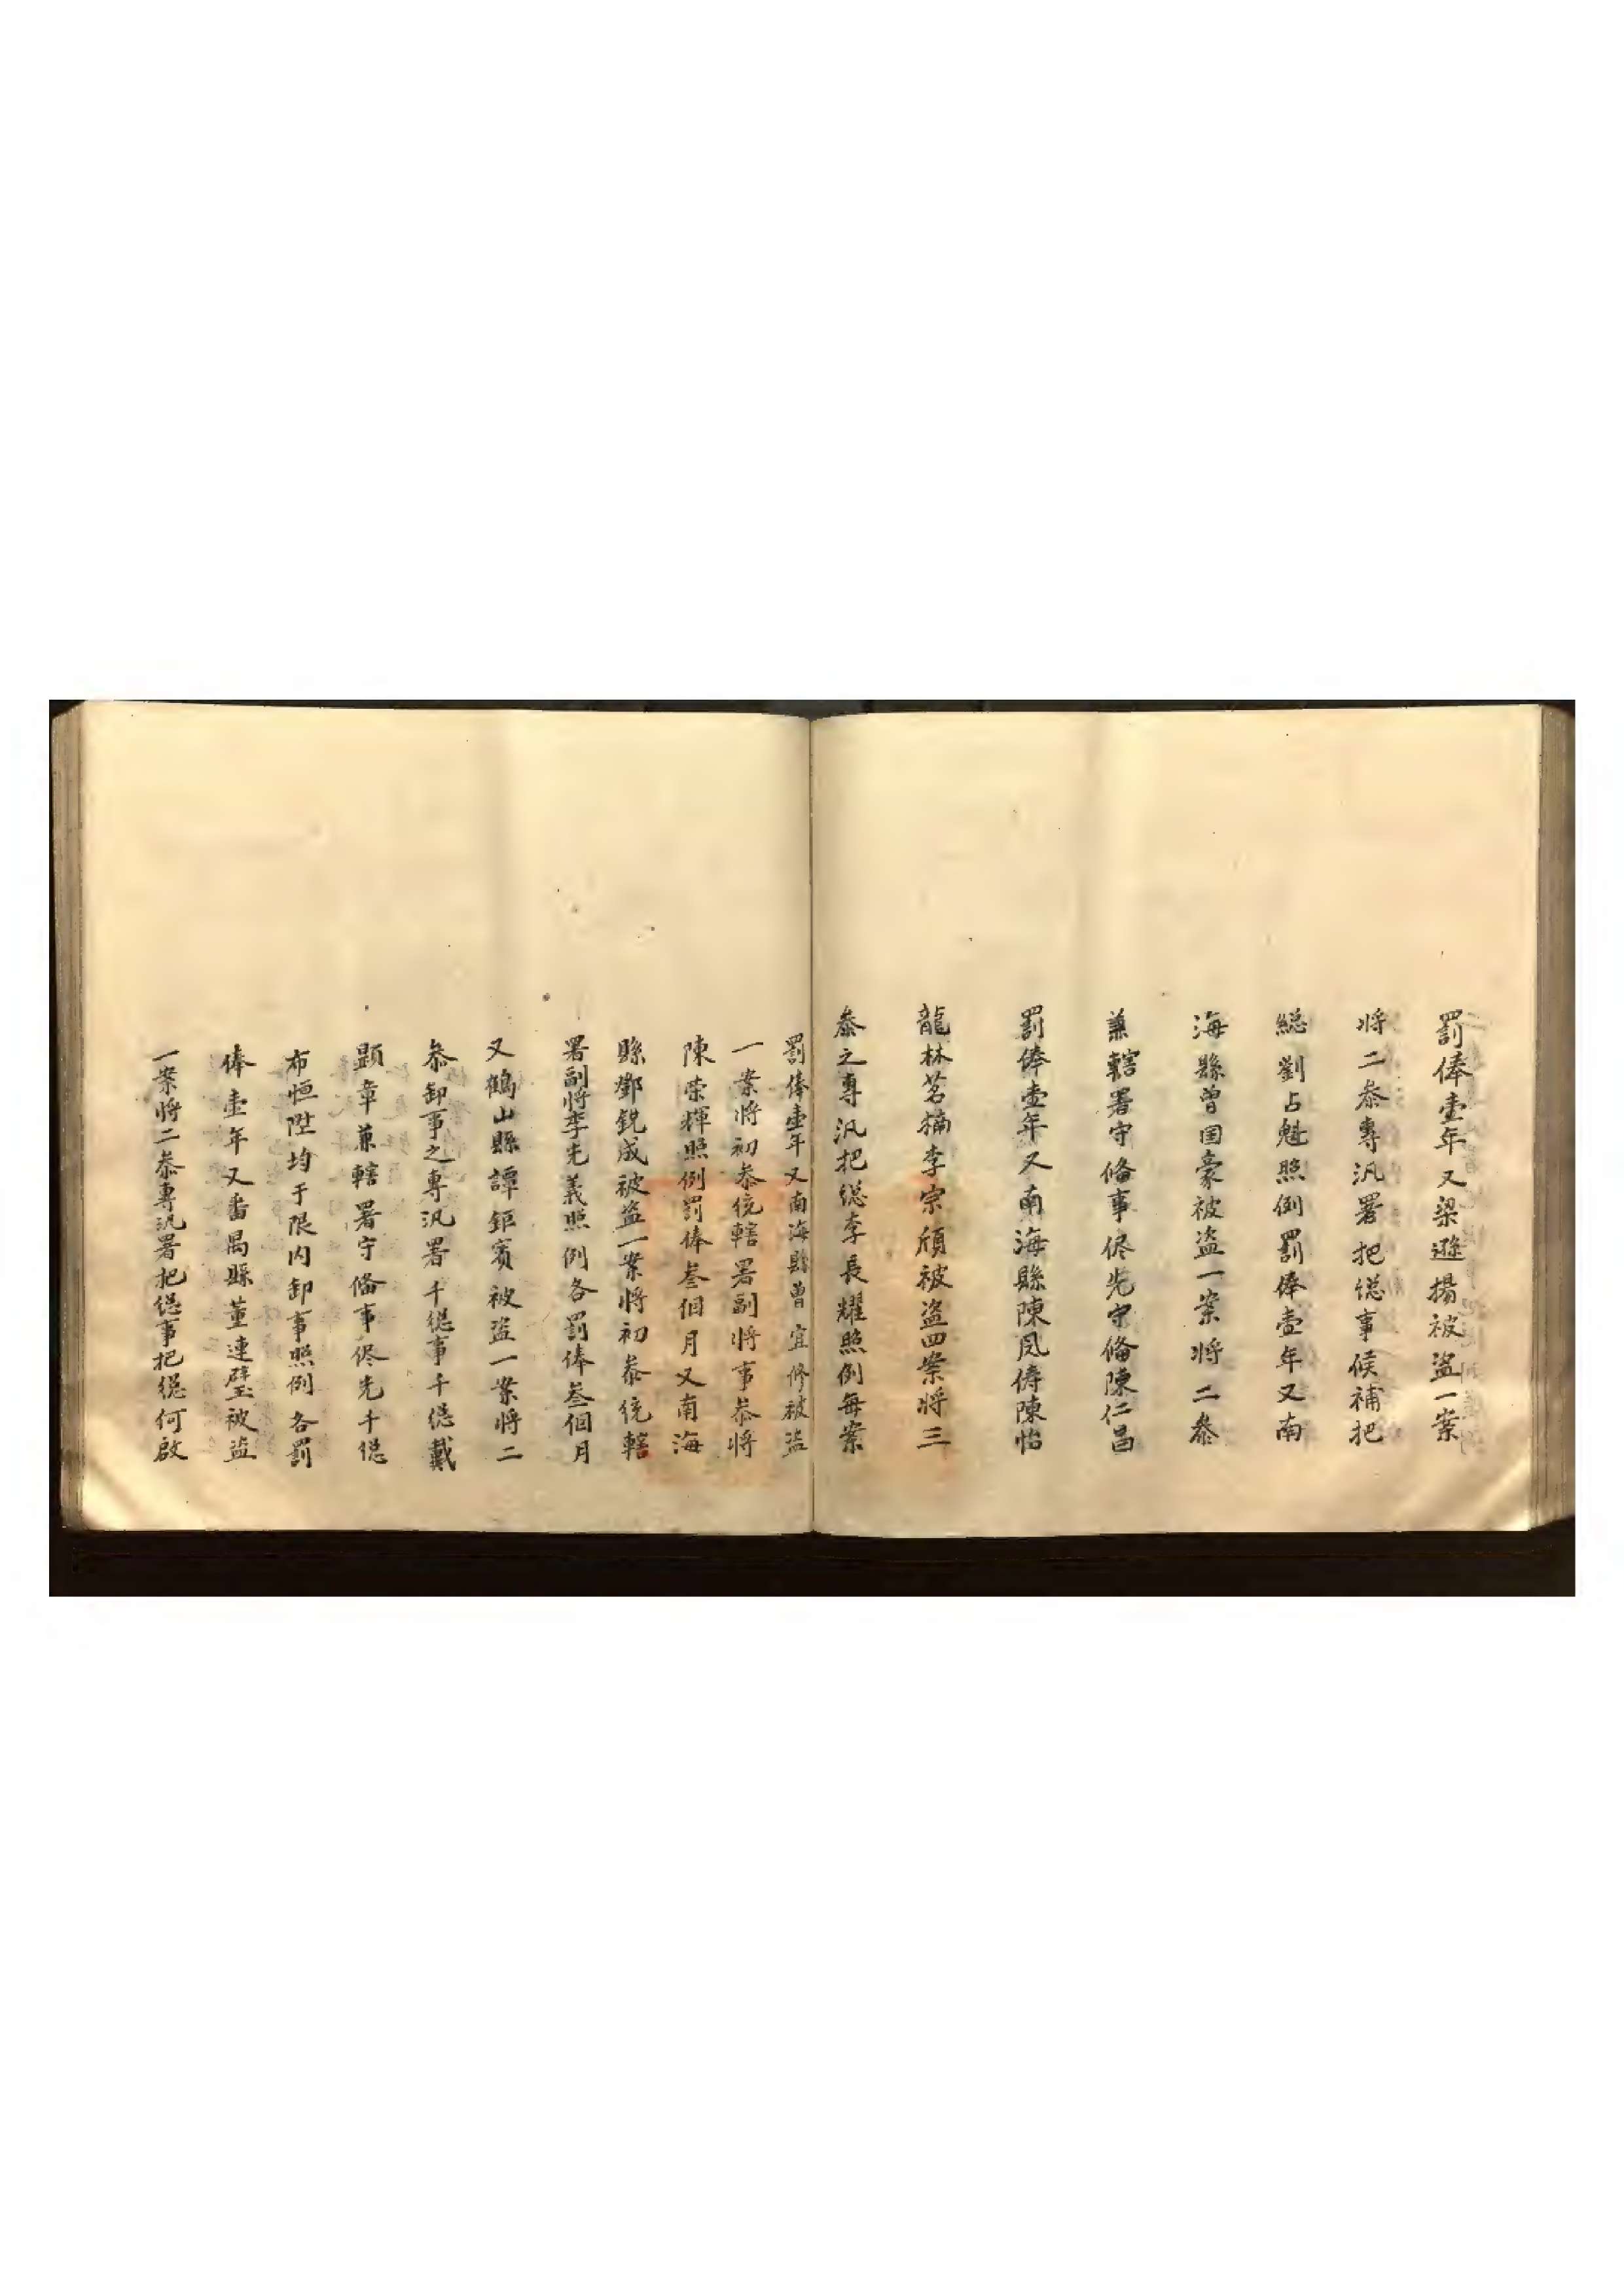 罰俸壹年又梁遜揚被盜一案
将二叅專汛署把縂事候補把
縂劉占魁照例罰俸壹年又南
海縣曾国豪被盗一案将二叅
兼轄署守俻事侭先守俻陳仁昌
罰俸壹年又南海縣陳凤俦陳怡
龍林茗楠李宗頎被盗四案将三
叅之專汛把縂李長耀照例每案
罰俸壹年又南海縣曾宜修被盗
一案将初叅统轄署副将事叅将
陳荣輝照例罰俸叁個月又南海
縣鄧銳成被盗一案将初叅统轄
署副将李先義照例各罰俸叁個月
又鶴山縣譚鉅賓被盗一案将二
叅卸事之專汛署千縂事千縂戴
顕章兼轄署守俻事侭先千縂
布恒陞均于限内卸事照例各罰
俸壹年又番禺縣董連璧被盗
一案将二叅專汛署把縂事把縂何啟